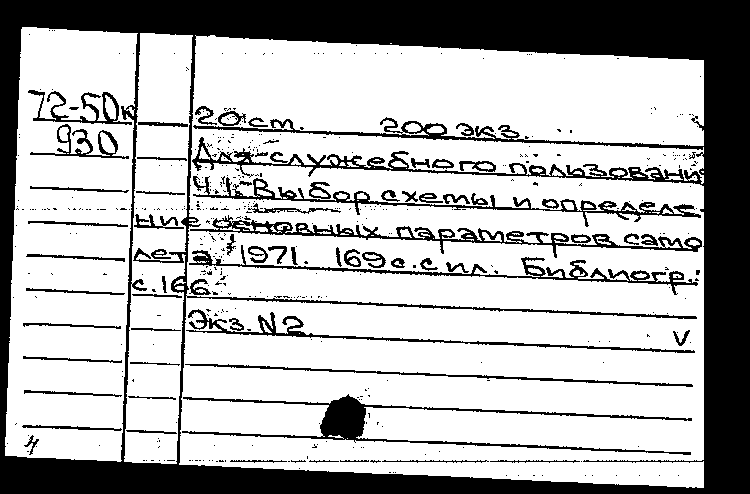 72-50к
930
20 ст. 200 экз.
Для служебного пользовани
Ч.1. Выбор схемы и определе-
ние основных параметров само
лета. 1971. 169 с. с ил. Библиогр.:
с.166.
Экз. N 2. V
4